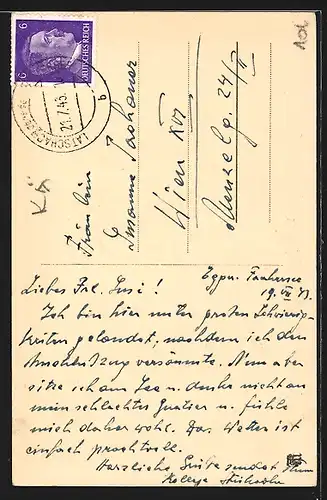 101
6 DEUTSCHES REICH 6
LATSCHACH
21.7.43
b
Kä
Fräulein
Susanne
Wien XVI
24/II
Egger Faakersee
19. VII 43.
Liebes Frl. Susi!
Ich bin hier unter großen Schwierig-
keiten gelandet, nachdem ich den
Anschlußzug versäumte. Nun aber
sitze ich am See u. denke nicht an
mein schlechtes Quatier u. fühle
mich daher wohl. Das Wetter ist
einfach prachtvoll.
Herzliche Grüße sendet Ihnen
Kollege